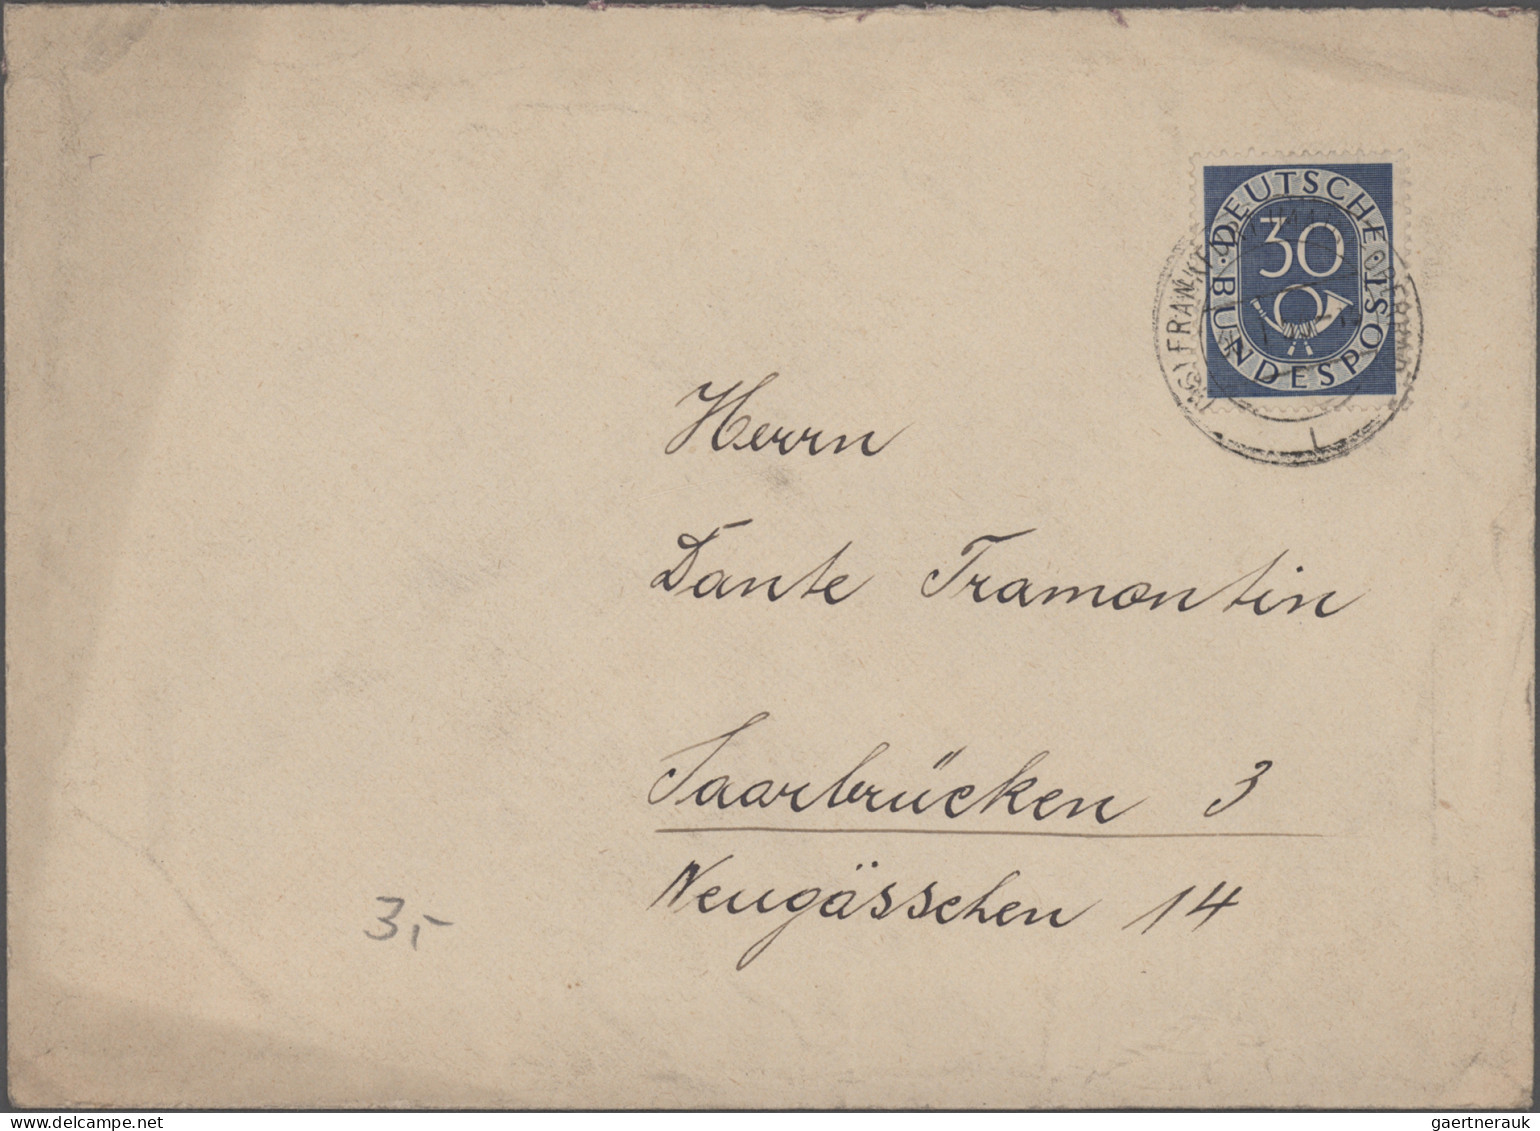 DEUTSCHE
30
BUNDESPOST
(16) FRANKFURT
Herrn
Dante Tramontin
Saarbrücken 3
Neugässchen 14
3,-
gaertnerauk